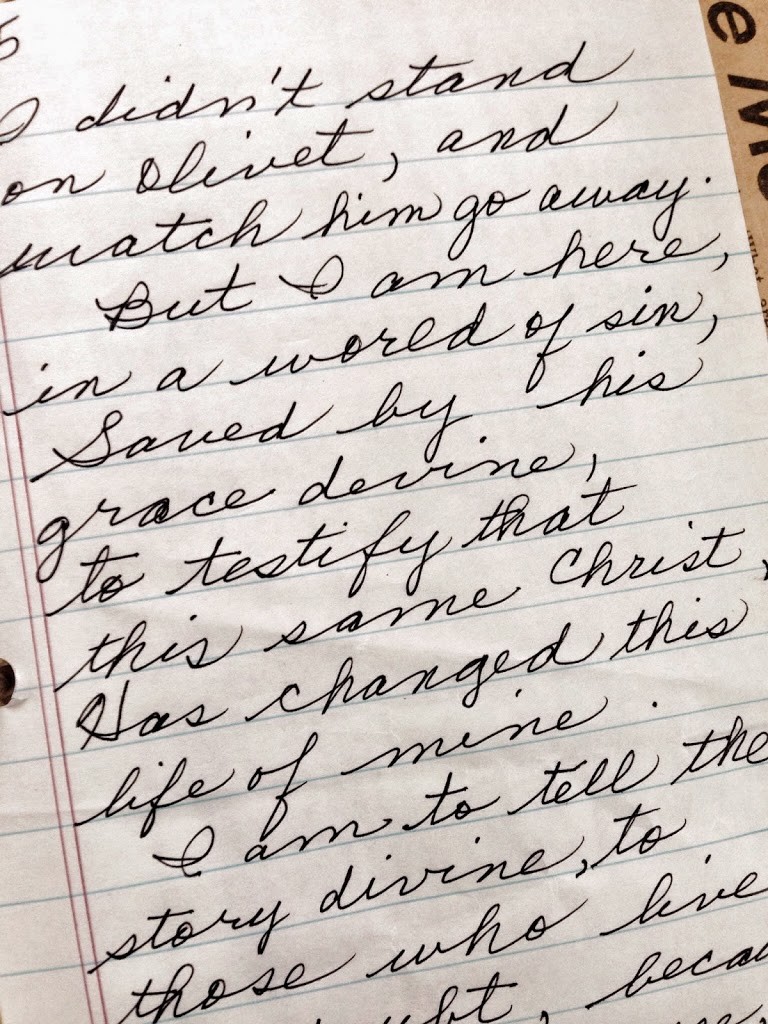 5
I didn't stand
on Olivet, and
watch him go away.
But I am here,
in a world of sin,
Saved by his
grace devine,
to testify that
this same Christ,
Has changed this
life of mine.
I am to tell the
story divine, to
those who live